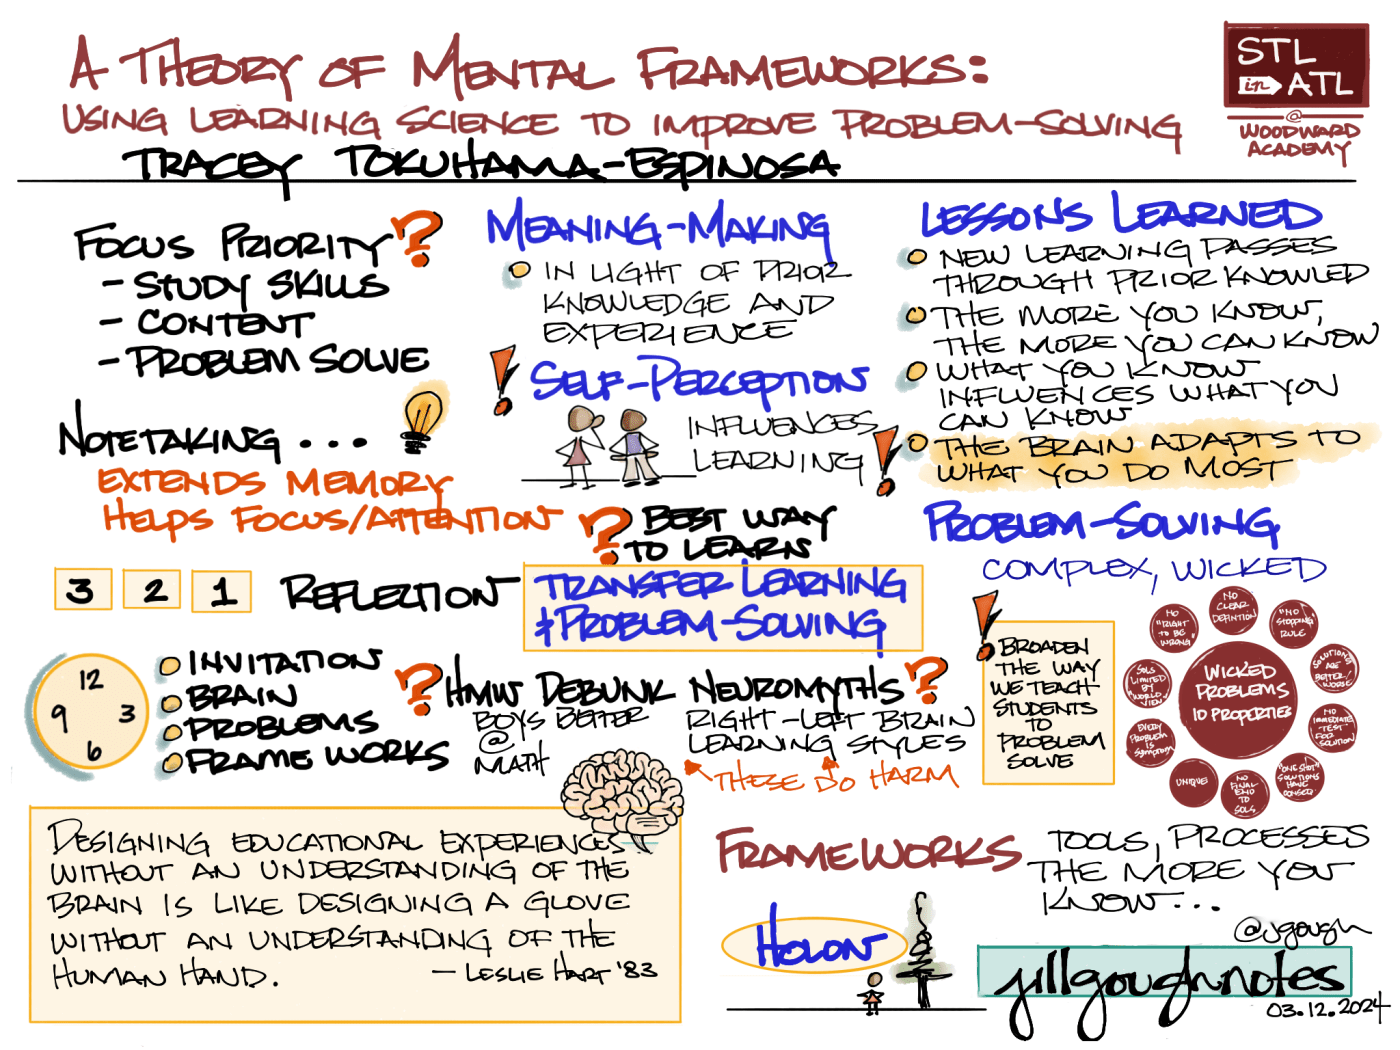 A THEORY OF MENTAL FRAMEWORKS:
USING LEARNING SCIENCE TO IMPROVE PROBLEM-SOLVING
TRACEY TOKUHAMA-ESPINOSA
STL
in ATL
@
WOODWARD
ACADEMY
FOCUS PRIORITY?
- STUDY SKILLS
- CONTENT
- PROBLEM SOLVE
NOTETAKING...
EXTENDS MEMORY
HELPS FOCUS/ATTENTION
3 2 1 REFLECTION
12
9 3
6
INVITATION
BRAIN
PROBLEMS
FRAMEWORKS
MEANING-MAKING
IN LIGHT OF PRIOR
KNOWLEDGE AND
EXPERIENCE
! SELF-PERCEPTION
INFLUENCES
LEARNING
? BEST WAY
TO LEARN
TRANSFER LEARNING
+PROBLEM-SOLVING
? HMW DEBUNK NEUROMYTHS?
BOYS BETTER
@
MATH
RIGHT-LEFT BRAIN
LEARNING STYLES
THESE DO HARM
LESSONS LEARNED
NEW LEARNING PASSES
THROUGH PRIOR KNOWLED
THE MORE YOU KNOW,
THE MORE YOU CAN KNOW
WHAT YOU KNOW
INFLUENCES WHAT YOU
CAN KNOW
! THE BRAIN ADAPTS TO
WHAT YOU DO MOST
PROBLEM-SOLVING
COMPLEX, WICKED
!
BROADEN
THE WAY
WE TEACH
STUDENTS
TO
PROBLEM
SOLVE
WICKED
PROBLEMS
10 PROPERTIES
NO
CLEAR
DEFINTION
"NO
STOPPING
RULE
SOLUTIONS
ARE
BETTER/
WORSE
NO
IMMEDIATE
TEST
FOR
SOLUTION
"ONE SHOT"
SOLUTIONS
HAVE
CONSEQ
NO
FINAL
END
TO
SOLS
UNIQUE!
EVERY
PROBLEM
IS
SYMPTOM
SOLS
LIMITED
BY
"WORLD
VIEW
NO
"RIGHT
TO BE
WRONG"
DESIGNING EDUCATIONAL EXPERIENCES
WITHOUT AN UNDERSTANDING OF THE
BRAIN IS LIKE DESIGNING A GLOVE
WITHOUT AN UNDERSTANDING OF THE
HUMAN HAND.
- LESLIE HART '83
FRAMEWORKS
TOOLS, PROCESSES
THE MORE YOU
KNOW...
HOLON
@jgough
jillgoughnotes
03.12.2024